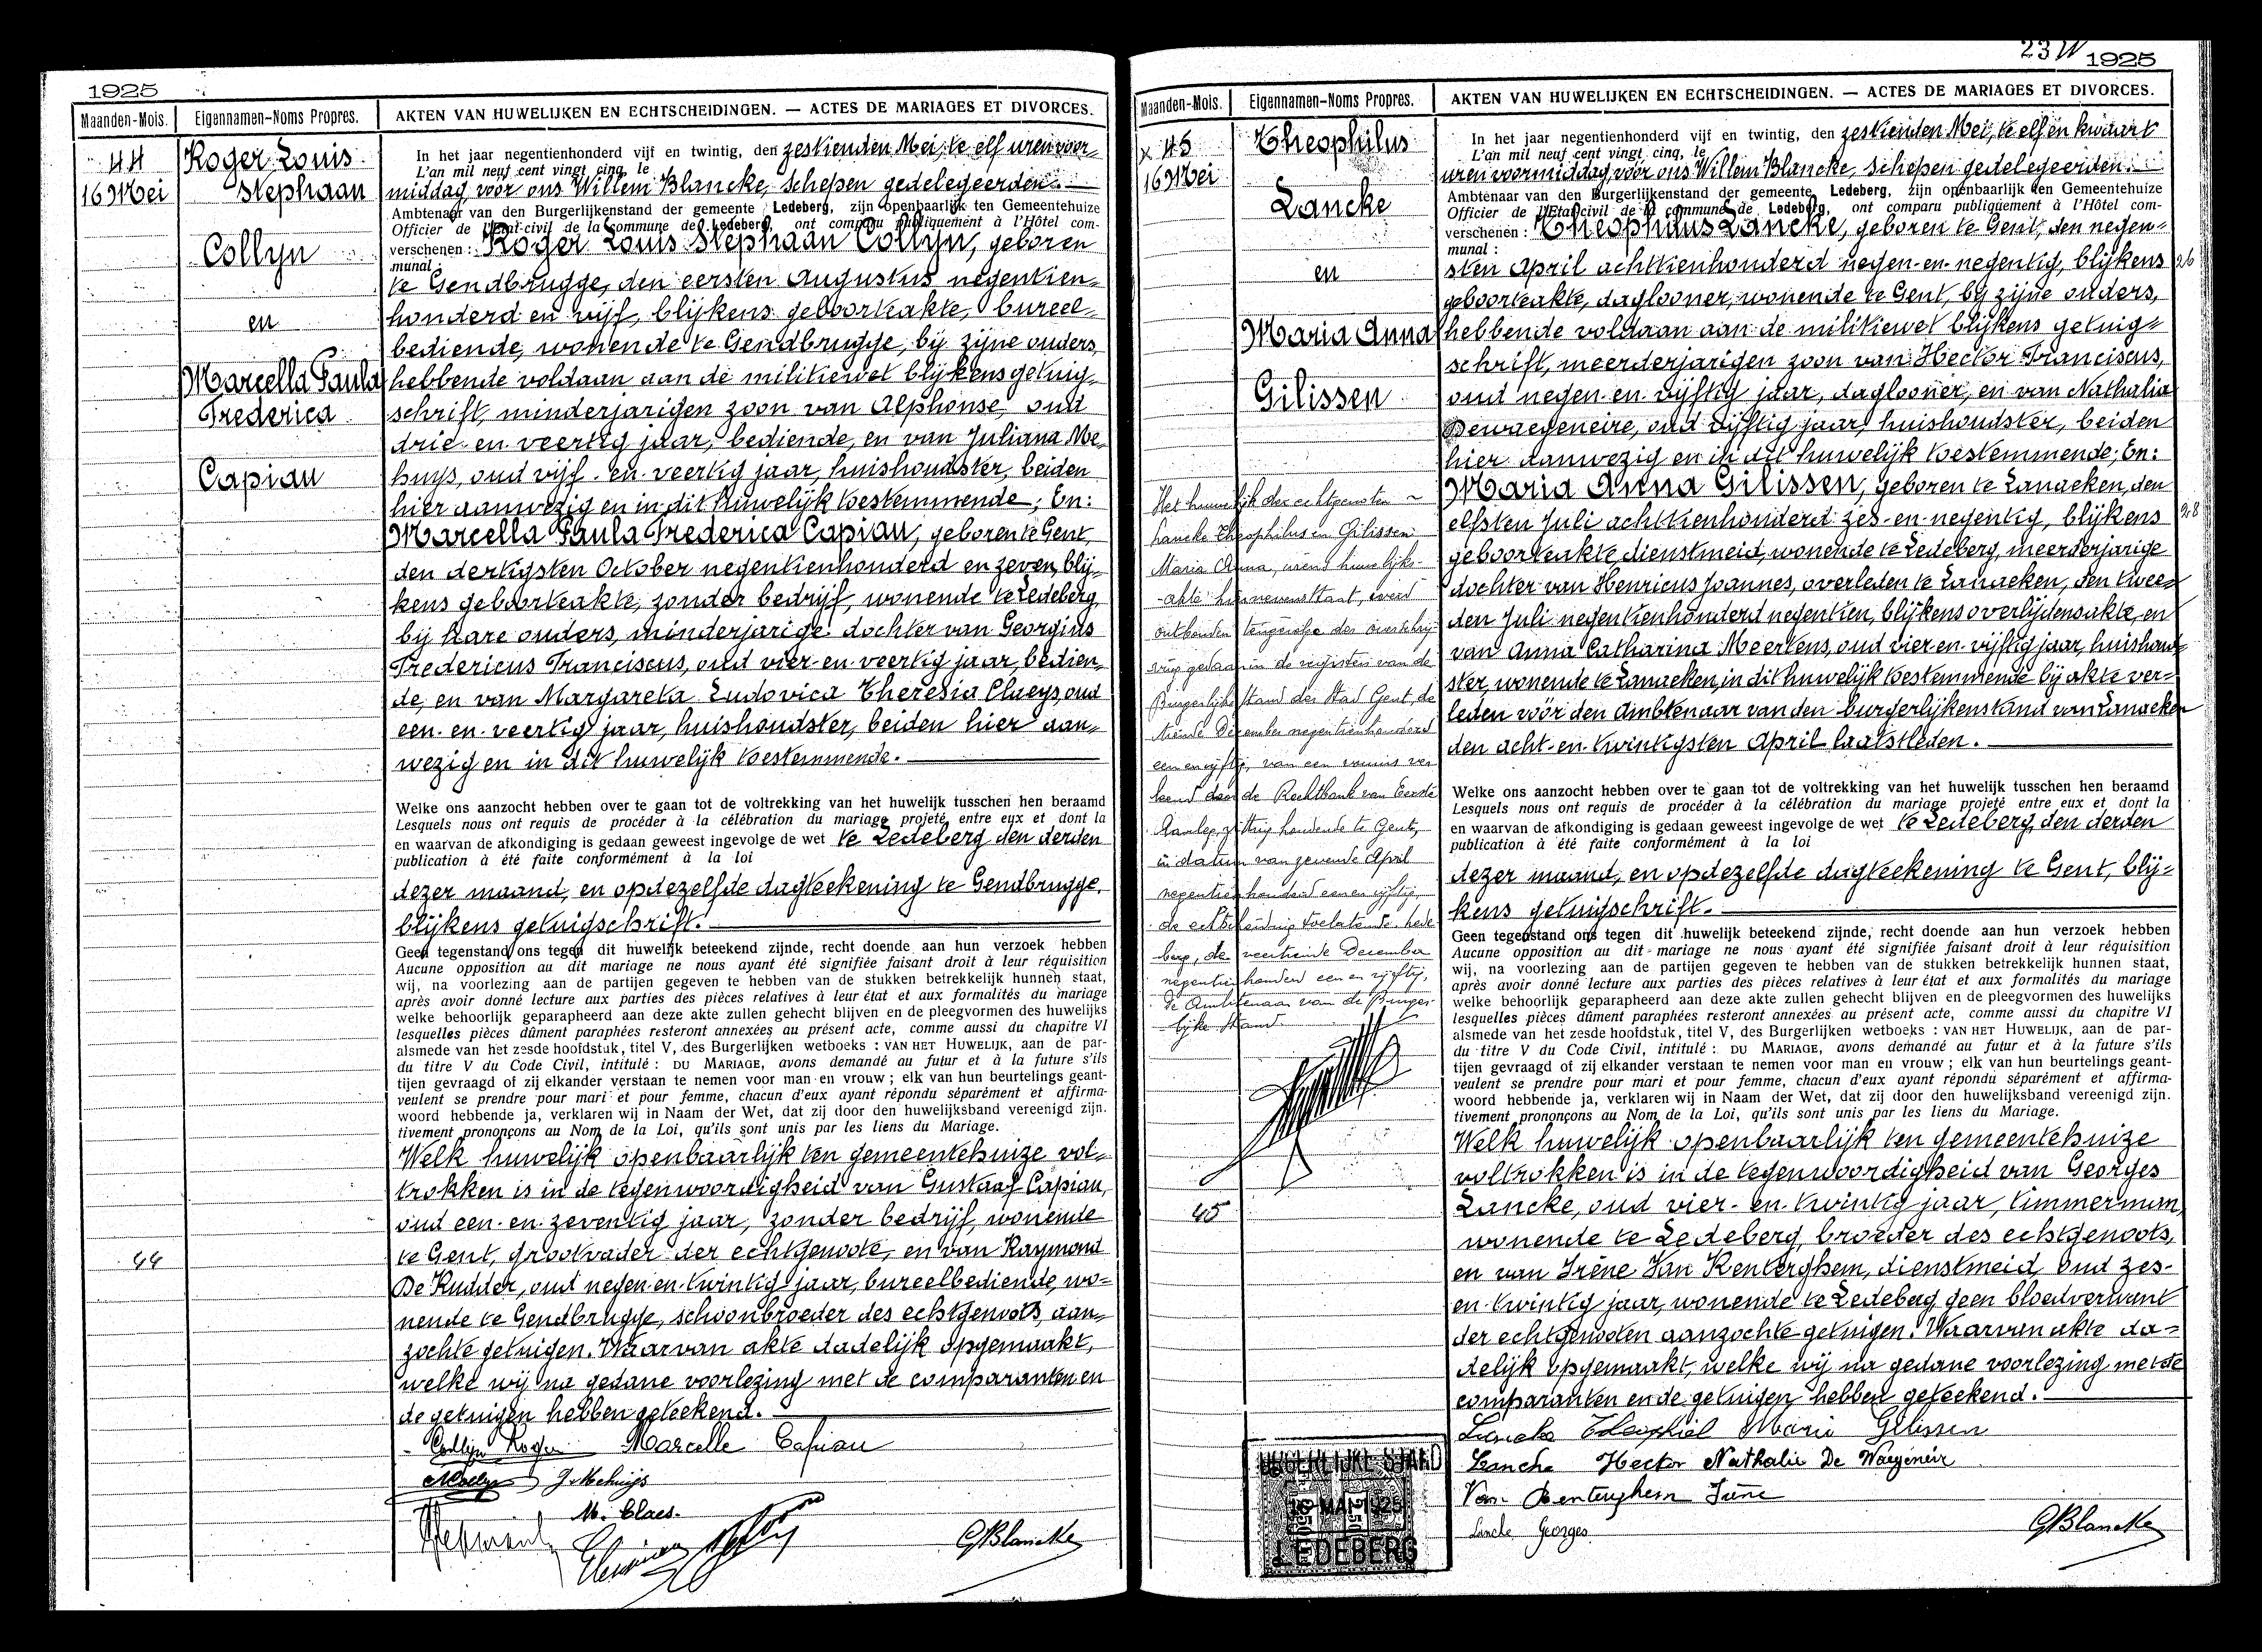 1925
Maanden-Mois.
Eigennamen-Noms Propres.
AKTEN VAN HUWELIJKEN EN ECHTSCHEIDINGEN. — ACTES DE MARIAGES ET DIVORCES.
44
16 Mei
Roger Louis
Stephaan
Collyn
en
Marcella Paula
Frederica
Capiau
In het jaar negentienhonderd vijf en twintig, den zestienden Mei, te elf uren voor-
L'an mil neuf cent vingt cinq, le
middag, voor ons Willem Blancke, Schepen gedelegeerden
Ambtenaar van den Burgerlijkenstand der gemeente Ledeberg, zijn openbaarlijk ten Gemeentehuize
Officier de l'Etat-civil de la commune de Ledeberg, ont comparu publiquement à l'Hôtel com-
verschenen: Roger Louis Stephaan Collyn, geboren
munal:
te Gendbrugge, den eersten Augustus negentien-
honderd en vijf, blijkens geboorteakte, bureel-
bediende, wonende te Gendbrugge, bij zijne ouders,
hebbende voldaan aan de militiewet blijkens getuig-
schrift, minderjarigen zoon van Alphonse, oud
drie- en veertig jaar, bediende, en van Juliana Me-
huys, oud vijf- en veertig jaar, huishoudster, beiden
hier aanwezig en in dit huwelijk toestemmende; En:
Marcella Paula Frederica Capiau, geboren te Gent,
den dertigsten October negentienhonderd en zeven, blij-
kens geboorteakte, zonder bedrijf, wonende te Ledeberg,
bij hare ouders, minderjarige dochter van Georgius
Fredericus Franciscus, oud vier-en-veertig jaar, bedien-
de, en van Margareta Ludovica Theresia Claeys, oud
een-en-veertig jaar, huishoudster, beiden hier aan-
wezig en in dit huwelijk toestemmende.
Welke ons aanzocht hebben over te gaan tot de voltrekking van het huwelijk tusschen hen beraamd
Lesquels nous ont requis de procéder à la célébration du mariage projeté entre eux et dont la
en waarvan de afkondiging is gedaan geweest ingevolge de wet te Ledeberg den derden
publication à été faite conformément à la loi
dezer maand, en op dezelfde dagteekening te Gendbrugge,
blijkens getuigschrift.
Geen tegenstand ons tegen dit huwelijk beteekend zijnde, recht doende aan hun verzoek hebben
Aucune opposition au dit mariage ne nous ayant été signifiée faisant droit à leur réquisition
wij, na voorlezing aan de partijen gegeven te hebben van de stukken betrekkelijk hunnen staat,
après avoir donné lecture aux parties des pièces relatives à leur état et aux formalités du mariage
welke behoorlijk geparapheerd aan deze akte zullen gehecht blijven en de pleegvormen des huwelijks
lesquelles pièces dûment paraphées resteront annexées au présent acte, comme aussi du chapitre VI
alsmede van het zesde hoofdstuk, titel V, des Burgerlijken wetboeks : VAN HET HUWELIJK, aan de par-
du titre V du Code Civil, intitulé : DU MARIAGE, avons demandé au futur et à la future s'ils
tijen gevraagd of zij elkander verstaan te nemen voor man en vrouw ; elk van hun beurtelings geant-
veulent se prendre pour mari et pour femme, chacun d'eux ayant répondu séparément et affirma-
woord hebbende ja, verklaren wij in Naam der Wet, dat zij door den huwelijksband vereenigd zijn.
tivement prononçons au Nom de la Loi, qu'ils sont unis par les liens du Mariage.
Welk huwelijk openbaarlijk ten gemeentehuize vol-
trokken is in de tegenwoordigheid van Gustaaf Capiau,
oud een-en-zeventig jaar, zonder bedrijf, wonende
te Gent, grootvader der echtgenoote, en van Raymond
De Rudder, oud negen-en-twintig jaar, bureelbediende, wo-
nende te Gendbrugge, schoonbroeder des echtgenoots, aan-
zochte getuigen. Waarvan akte dadelijk opgemaakt,
welke wij na gedane voorlezing met de comparanten en
de getuigen hebben geteekend.
44
Collyn Roger Marcelle Capiau
J. Mehuijs
M. Claes.
GBlancke
23 W
1925
Maanden-Mois.
Eigennamen-Noms Propres.
AKTEN VAN HUWELIJKEN EN ECHTSCHEIDINGEN. — ACTES DE MARIAGES ET DIVORCES.
x 45
16 Mei
Theophilus
Lancke
en
Maria Anna
Gilissen
In het jaar negentienhonderd vijf en twintig, den zestienden Mei, te elf en kwaart
L'an mil neuf cent vingt cinq, le
uren voormiddag, voor ons Willem Blancke, Schepen gedelegeerden
Ambtenaar van den Burgerlijkenstand der gemeente Ledeberg, zijn openbaarlijk ten Gemeentehuize
Officier de l'Etat-civil de la commune de Ledeberg, ont comparu publiquement à l'Hôtel com-
verschenen: Theophilus Lancke, geboren te Gent, den negen-
munal :
sten April achttienhonderd negen-en-negentig, blijkens 26
geboorteakte, daglooner, wonende te Gent, bij zijne ouders,
hebbende voldaan aan de militiewet blijkens getuig-
schrift, meerderjarigen zoon van Hector Franciscus,
oud negen-en-vijftig jaar, daglooner, en van Nathalia
Dewaegeneire, oud vijftig jaar, huishoudster, beiden
hier aanwezig en in dit huwelijk toestemmende; En:
Maria Anna Gilissen, geboren te Lanaeken, den
elfsten Juli achttienhonderd zes-en-negentig, blijkens 28
geboorteakte, dienstmeid, wonende te Ledeberg, meerderjarige
dochter van Henricus Joannes, overleden te Lanaeken, den twee-
den Juli negentienhonderd negentien, blijkens overlijdensakte, en
van Anna Catharina Meertens, oud vier-en-vijftig jaar, huishoud-
ster, wonende te Lanaeken, in dit huwelijk toestemmende bij akte ver-
leden vóór den Ambtenaar van den burgerlijkenstand van Lanaeken
den acht-en-twintigsten April laatstleden.
Welke ons aanzocht hebben over te gaan tot de voltrekking van het huwelijk tusschen hen beraamd
Lesquels nous ont requis de procéder à la célébration du mariage projeté entre eux et dont la
en waarvan de afkondiging is gedaan geweest ingevolge de wet te Ledeberg, den derden
publication à été faite conformément à la loi
dezer maand, en op dezelfde dagteekening te Gent, blij-
kens getuigschrift.
Geen tegenstand ons tegen dit huwelijk beteekend zijnde, recht doende aan hun verzoek hebben
Aucune opposition au dit mariage ne nous ayant été signifiée faisant droit à leur réquisition
wij, na voorlezing aan de partijen gegeven te hebben van de stukken betrekkelijk hunnen staat,
après avoir donné lecture aux parties des pièces relatives à leur état et aux formalités du mariage
welke behoorlijk geparapheerd aan deze akte zullen gehecht blijven en de pleegvormen des huwelijks
lesquelles pièces dûment paraphées resteront annexées au présent acte, comme aussi du chapitre VI
alsmede van het zesde hoofdstuk, titel V, des Burgerlijken wetboeks : VAN HET HUWELIJK, aan de par-
du titre V du Code Civil, intitulé : DU MARIAGE, avons demandé au futur et à la future s'ils
tijen gevraagd of zij elkander verstaan te nemen voor man en vrouw ; elk van hun beurtelings geant-
veulent se prendre pour mari et pour femme, chacun d'eux ayant répondu séparément et affirma-
woord hebbende ja, verklaren wij in Naam der Wet, dat zij door den huwelijksband vereenigd zijn.
tivement prononçons au Nom de la Loi, qu'ils sont unis par les liens du Mariage.
Welk huwelijk openbaarlijk ten gemeentehuize
voltrokken is in de tegenwoordigheid van Georges
Lancke, oud vier-en-twintig jaar, timmerman,
wonende te Ledeberg, broeder des echtgenoots,
en van Irène Van Renterghem, dienstmeid, oud zes-
en-twintig jaar, wonende te Ledeberg, geen bloedverwant
der echtgenooten aanzochte getuigen. Waarvan akte da-
delijk opgemaakt, welke wij na gedane voorlezing met de
comparanten en de getuigen hebben geteekend.
Het huwelijk der echtgenoten
Lancke Theophilus en Gilissen
Maria Anna, wiens huwelijks-
akte hiernevens staat, werd
ontbonden tengevolge der overschrij-
ving gedaan in de registers van de
Burgerlijke stand der Stad Gent, de
tiende December negentienhonderd
een en vijftig, van een vonnis ver-
leend door de Rechtbank van Eerste
Aanleg, zitting houdende te Gent,
in datum van zevende April
negentienhonderd een en vijftig,
de echtscheiding toelatende. Lede-
berg, de veertiende December
negentienhonderd een en vijftig.
De Ambtenaar van de Burger-
lijke Stand.
45
BURGERLIJKE STAND
16 MAI 1925
LEDEBERG
Lancke Theophiel Maria Gilissen
Lancke Hector Nathalie De Waegeneir
Van Renterghem Irène
Lancke Georges
GBlancke